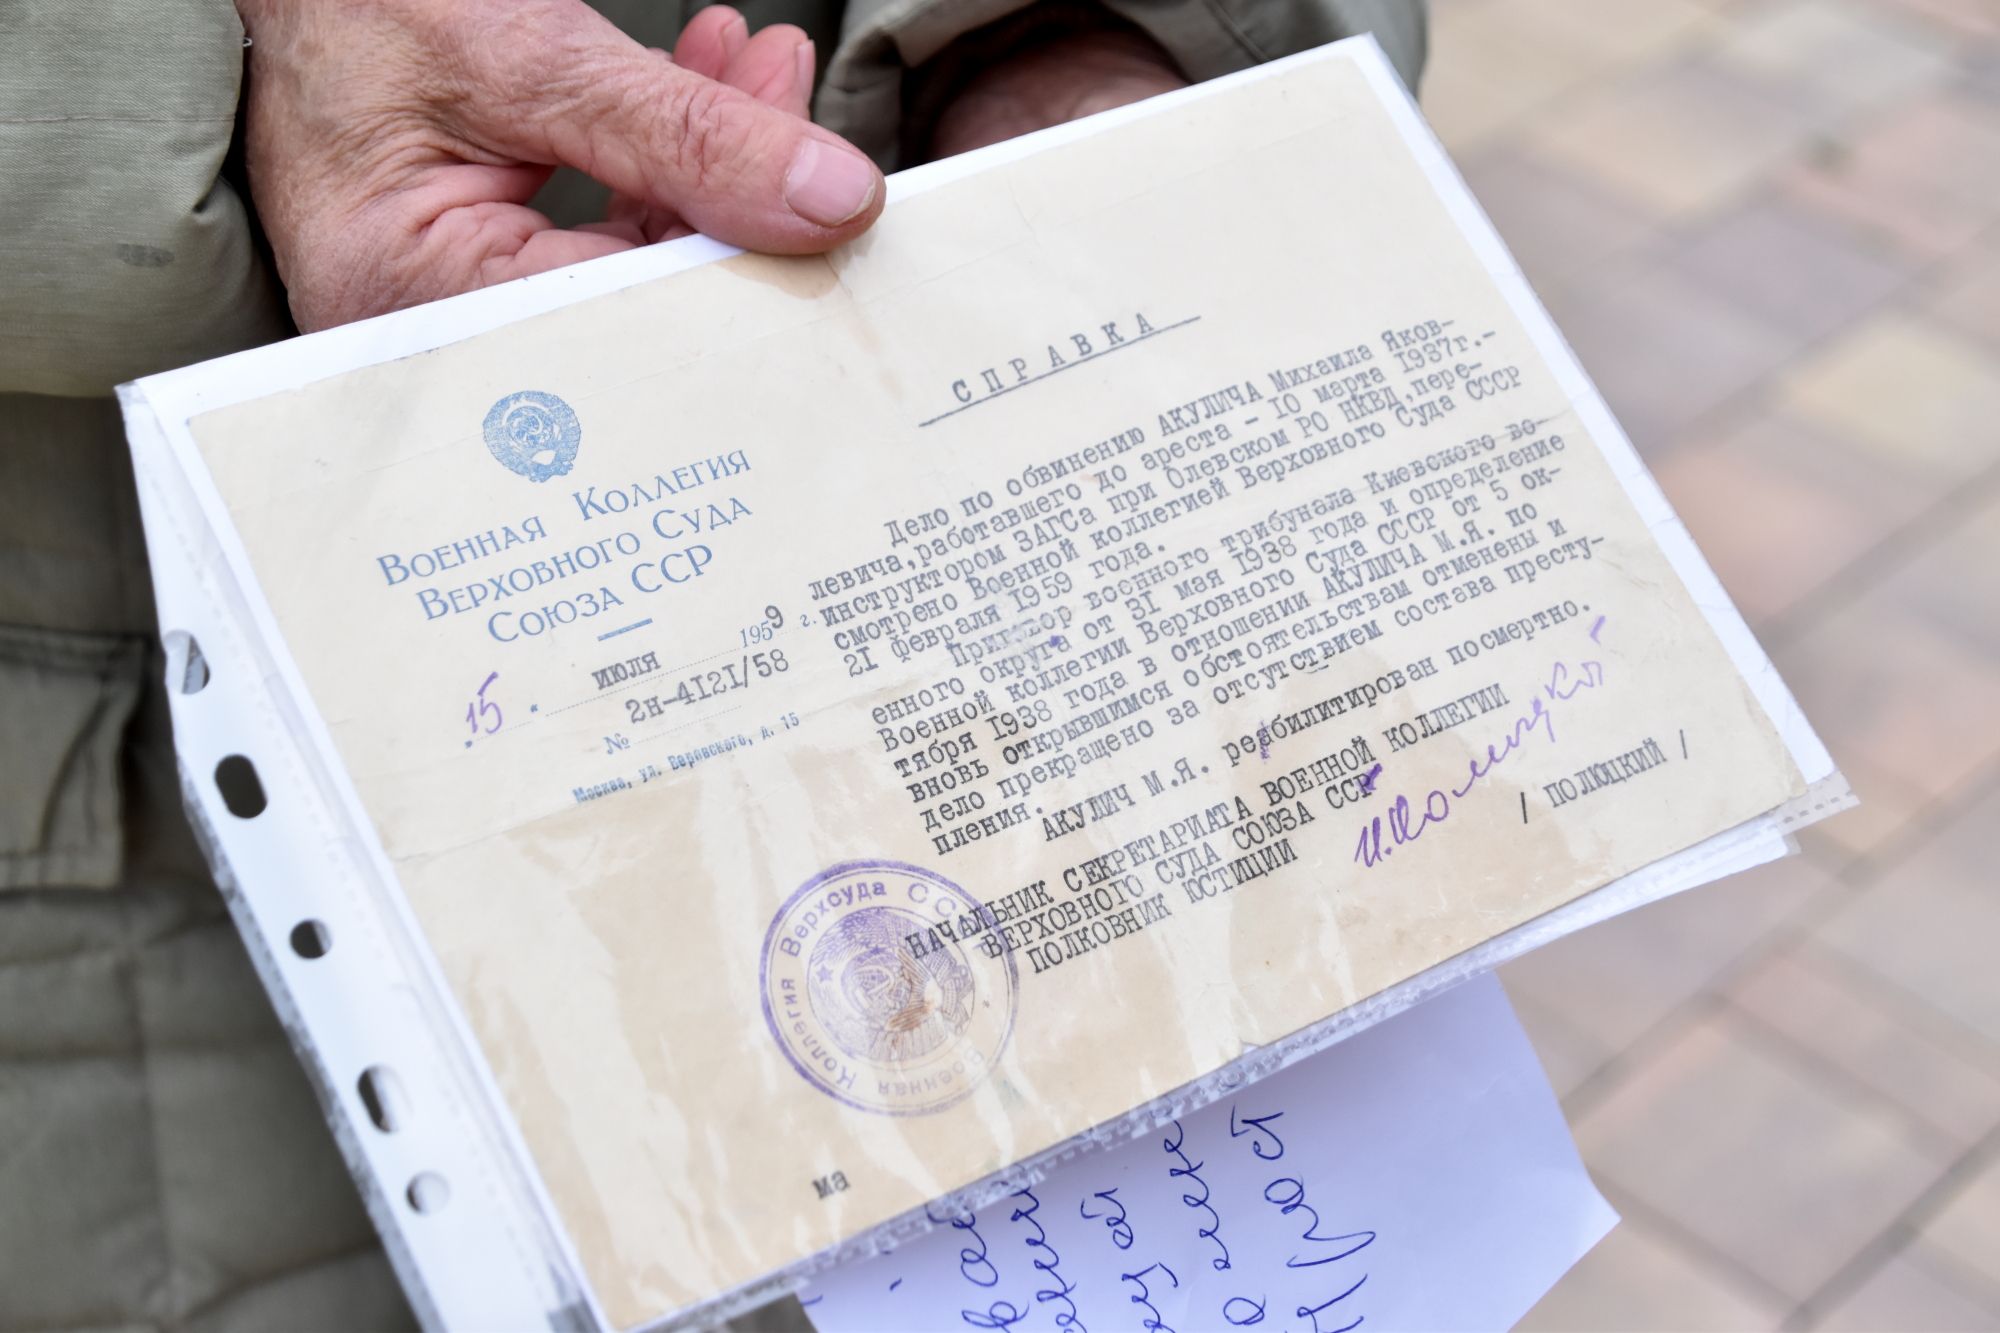 Военная Коллегия
Верховного Суда
Союза ССР
15 " июля 1959 г.
№ 2н-4121/58
Москва, ул. Воровского, д. 15
СПРАВКА
Дело по обвинению АКУЛИЧА Михаила Яков-
левича,работавшего до ареста - 10 марта 1937г.-
инструктором ЗАГСа при Олевском РО НКВД,пере-
смотрено Военной коллегией Верховного Суда СССР
21 февраля 1959 года.
Приговор военного трибунала Киевского во-
енного округа от 31 мая 1938 года и определение
Военной коллегии Верховного Суда СССР от 5 ок-
тября 1938 года в отношении АКУЛИЧА М.Я. по
вновь открывшимся обстоятельствам отменены и
дело прекращено за отсутствием состава престу-
пления.
АКУЛИЧ М.Я. реабилитирован посмертно.
НАЧАЛЬНИК СЕКРЕТАРИАТА ВОЕННОЙ КОЛЛЕГИИ
ВЕРХОВНОГО СУДА СОЮЗА ССР
ПОЛКОВНИК ЮСТИЦИИ
/ ПОЛЮЦКИЙ /
Военная Коллегия Верхсуда СССР
ма